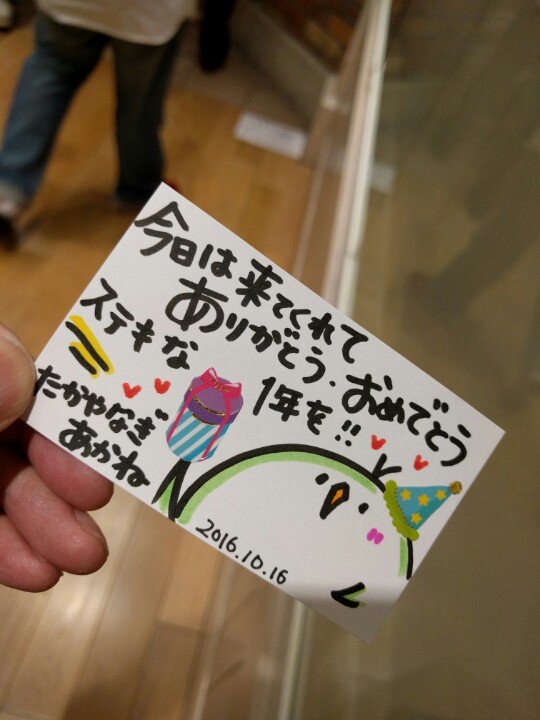 今日は来てくれて
ありがとう.おめでとう
ステキな 1年を!!
たかやなぎ
あかね
2016.10.16